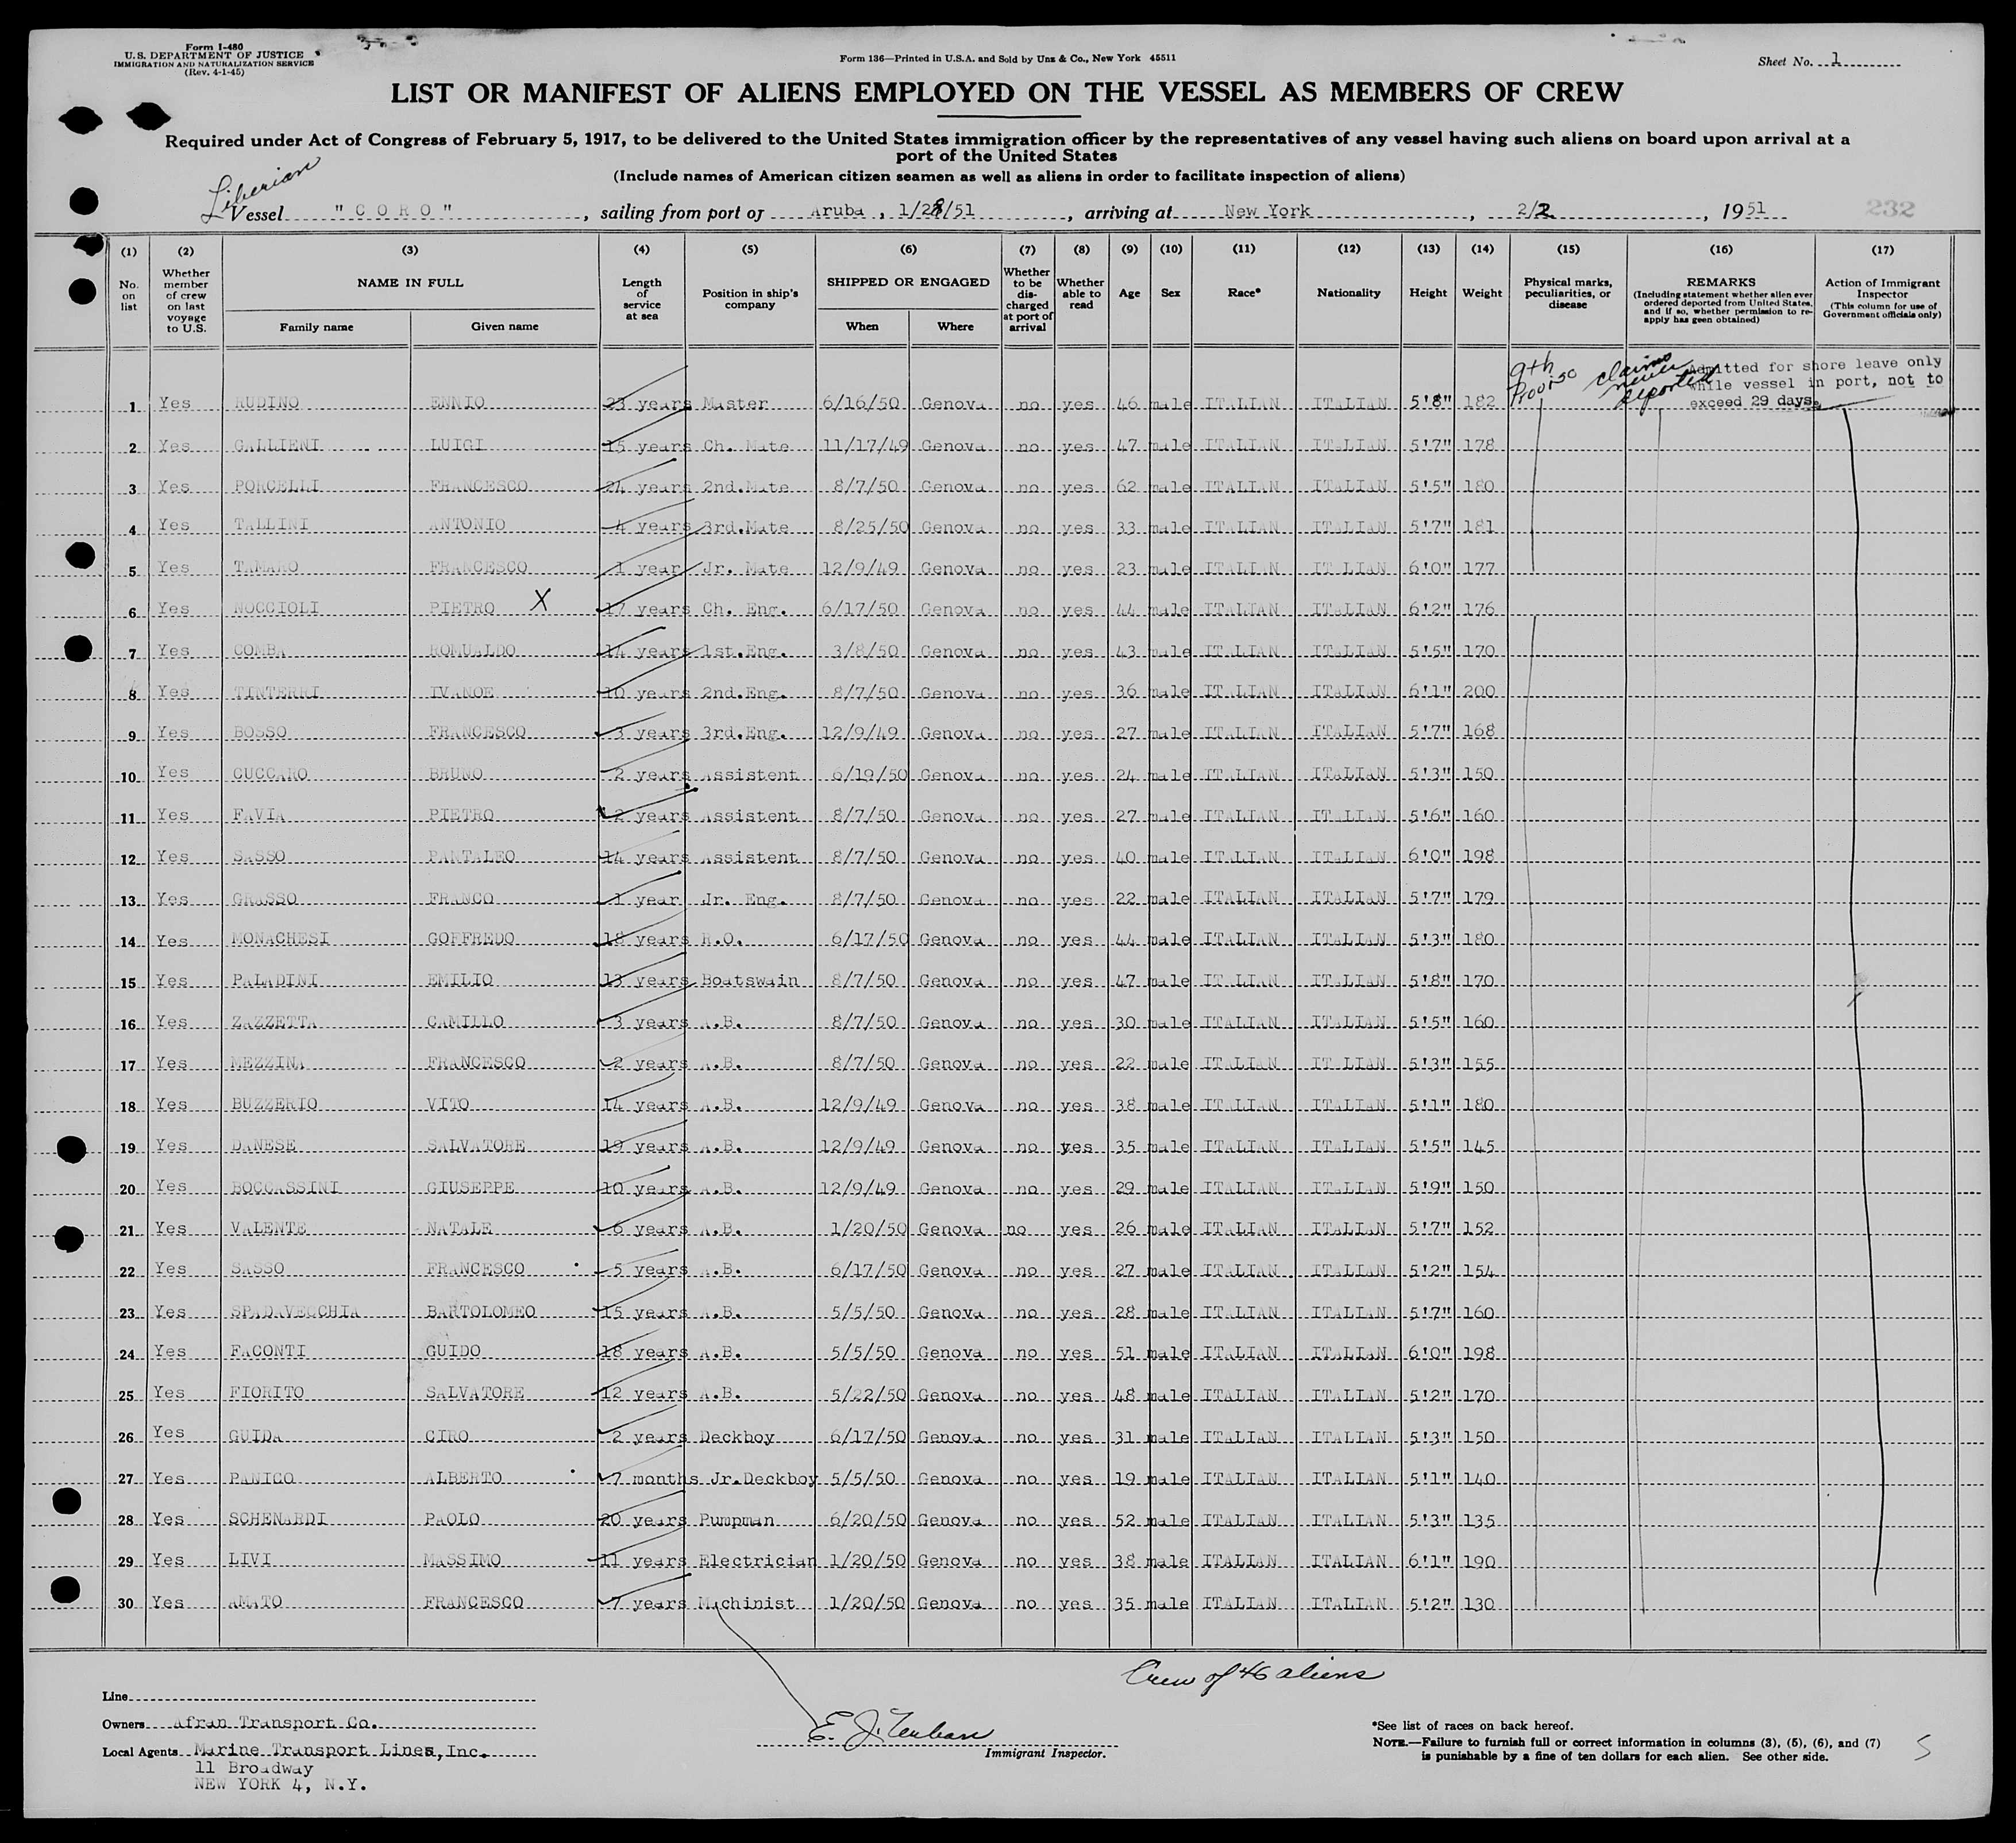 Form I-480
U. S. DEPARTMENT OF JUSTICE
IMMIGRATION AND NATURALIZATION SERVICE
(Rev. 4-1-45)
Form 136—Printed in U.S.A. and Sold by Unz & Co., New York 45511
Sheet No. 1
LIST OR MANIFEST OF ALIENS EMPLOYED ON THE VESSEL AS MEMBERS OF CREW
Required under Act of Congress of February 5, 1917, to be delivered to the United States immigration officer by the representatives of any vessel having such aliens on board upon arrival at a
port of the United States
(Include names of American citizen seamen as well as aliens in order to facilitate inspection of aliens)
Liberian
Vessel " C O R O ", sailing from port of Aruba, 1/28/51, arriving at New York, 2/2, 1951 232
(1) (2) (3) (4) (5) (6) (7) (8) (9) (10) (11) (12) (13) (14) (15) (16) (17)
No. on list
Whether member of crew on last voyage to U.S.
NAME IN FULL
Family name Given name
Length of service at sea
Position in ship's company
SHIPPED OR ENGAGED
When Where
Whether to be discharged at port of arrival
Whether able to read
Age Sex Race* Nationality Height Weight
Physical marks, peculiarities, or disease
REMARKS
(Including statement whether alien ever ordered deported from United States, and if so, whether permission to re-apply has been obtained)
Action of Immigrant Inspector
(This column for use of Government officials only)
9th Proviso claims never deported
Admitted for shore leave only
while vessel in port, not to
exceed 29 days.
1 Yes RUDINO ENNIO 23 years Master 6/16/50 Genova no yes 46 male ITALIAN ITALIAN 5'8" 182
2 Yes GALLIENI LUIGI 15 years Ch. Mate 11/17/49 Genova no yes 47 male ITALIAN ITALIAN 5'7" 178
3 Yes PORCELLI FRANCESCO 24 years 2nd.Mate 8/7/50 Genova no yes 62 male ITALIAN ITALIAN 5'5" 180
4 Yes TALLINI ANTONIO 4 years 3rd.Mate 8/25/50 Genova no yes 33 male ITALIAN ITALIAN 5'7" 181
5 Yes TAMARO FRANCESCO 1 year Jr. Mate 12/9/49 Genova no yes 23 male ITALIAN ITALIAN 6'0" 177
6 Yes NOCCIOLI PIETRO X 17 years Ch. Eng. 6/17/50 Genova no yes 44 male ITALIAN ITALIAN 6'2" 176
7 Yes COMBA ROMUALDO 14 years 1st.Eng. 3/8/50 Genova no yes 43 male ITALIAN ITALIAN 5'5" 170
8 Yes TINTERRI IVANOE 10 years 2nd.Eng. 8/7/50 Genova no yes 36 male ITALIAN ITALIAN 6'1" 200
9 Yes BOSSO FRANCESCO 3 years 3rd.Eng. 12/9/49 Genova no yes 27 male ITALIAN ITALIAN 5'7" 168
10 Yes CUCCARO BRUNO 2 years Assistent 6/19/50 Genova no yes 24 male ITALIAN ITALIAN 5'3" 150
11 Yes FAVIA PIETRO 2 years Assistent 8/7/50 Genova no yes 27 male ITALIAN ITALIAN 5'6" 160
12 Yes SASSO PANTALEO 14 years Assistent 8/7/50 Genova no yes 40 male ITALIAN ITALIAN 6'0" 198
13 Yes GRASSO FRANCO 1 year Jr. Eng. 8/7/50 Genova no yes 22 male ITALIAN ITALIAN 5'7" 179
14 Yes MONACHESI GOFFREDO 18 years R.O. 6/17/50 Genova no yes 44 male ITALIAN ITALIAN 5'3" 180
15 Yes PALADINI EMILIO 13 years Boatswain 8/7/50 Genova no yes 47 male ITALIAN ITALIAN 5'8" 170
16 Yes ZAZZETTA CAMILLO 3 years A.B. 8/7/50 Genova no yes 30 male ITALIAN ITALIAN 5'5" 160
17 Yes MEZZINA FRANCESCO 2 years A.B. 8/7/50 Genova no yes 22 male ITALIAN ITALIAN 5'3" 155
18 Yes BUZZERIO VITO 14 years A.B. 12/9/49 Genova no yes 38 male ITALIAN ITALIAN 5'1" 180
19 Yes DANESE SALVATORE 19 years A.B. 12/9/49 Genova no yes 35 male ITALIAN ITALIAN 5'5" 145
20 Yes BOCCASSINI GIUSEPPE 10 years A.B. 12/9/49 Genova no yes 29 male ITALIAN ITALIAN 5'9" 150
21 Yes VALENTE NATALE 6 years A.B. 1/20/50 Genova no yes 26 male ITALIAN ITALIAN 5'7" 152
22 Yes SASSO FRANCESCO 5 years A.B. 6/17/50 Genova no yes 27 male ITALIAN ITALIAN 5'2" 154
23 Yes SPADAVECCHIA BARTOLOMEO 15 years A.B. 5/5/50 Genova no yes 28 male ITALIAN ITALIAN 5'7" 160
24 Yes FACONTI GUIDO 18 years A.B. 5/5/50 Genova no yes 51 male ITALIAN ITALIAN 6'0" 198
25 Yes FIORITO SALVATORE 12 years A.B. 5/22/50 Genova no yes 48 male ITALIAN ITALIAN 5'2" 170
26 Yes GUIDA CIRO 2 years Deckboy 6/17/50 Genova no yes 31 male ITALIAN ITALIAN 5'3" 150
27 Yes PANICO ALBERTO 7 months Jr.Deckboy 5/5/50 Genova no yes 19 male ITALIAN ITALIAN 5'1" 140
28 Yes SCHENARDI PAOLO 20 years Pumpman 6/20/50 Genova no yes 52 male ITALIAN ITALIAN 5'3" 135
29 Yes LIVI MASSIMO 11 years Electrician 1/20/50 Genova no yes 38 male ITALIAN ITALIAN 6'1" 190
30 Yes AMATO FRANCESCO 7 years Machinist 1/20/50 Genova no yes 35 male ITALIAN ITALIAN 5'2" 130
Crew of 46 aliens
Line
Owners Afran Transport Co.
Local Agents Marine Transport Lines, Inc.
11 Broadway
NEW YORK 4, N.Y.
E. J.
Immigrant Inspector.
*See list of races on back hereof.
NOTE.—Failure to furnish full or correct information in columns (3), (5), (6), and (7)
is punishable by a fine of ten dollars for each alien. See other side.